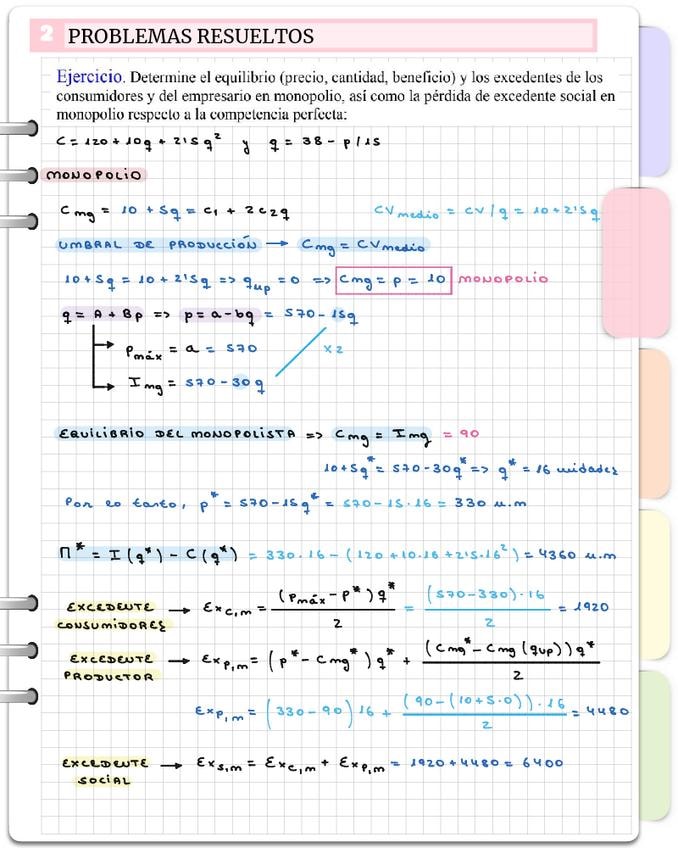 2 PROBLEMAS RESUELTOS
Ejercicio. Determine el equilibrio (precio, cantidad, beneficio) y los excedentes de los
consumidores y del empresario en monopolio, así como la pérdida de excedente social en
monopolio respecto a la competencia perfecta:
C = 120 + 10q + 2'5q² y q = 38 - p/15
MONOPOLIO
Cmg = 10 + 5q = c₁ + 2c₂q CVmedio = CV/q = 10 + 2'5q
UMBRAL DE PRODUCCIÓN → Cmg = CVmedio
10 + 5q = 10 + 2'5q => qup = 0 => Cmg = p = 10 MONOPOLIO
q = A + Bp => p = a - bq = 570 - 15q
Pmáx = a = 570 x2
Img = 570 - 30q
EQUILIBRIO DEL MONOPOLISTA => Cmg = Img = 90
10 + 5q* = 570 - 30q* => q* = 16 unidades
Por lo tanto, p* = 570 - 15q* = 570 - 15·16 = 330 u.m
Π* = I(q*) - C(q*) = 330·16 - (120 + 10·16 + 2'5·16²) = 4360 u.m
EXCEDENTE CONSUMIDORES → Exc,m = (Pmáx - p*)q* / 2 = (570 - 330)·16 / 2 = 1920
EXCEDENTE PRODUCTOR → Exp,m = (p* - Cmg*)q* + (Cmg* - Cmg(qup))q* / 2
Exp,m = (330 - 90)16 + (90 - (10 + 5·0))·16 / 2 = 4480
EXCEDENTE SOCIAL → Exs,m = Exc,m + Exp,m = 1920 + 4480 = 6400